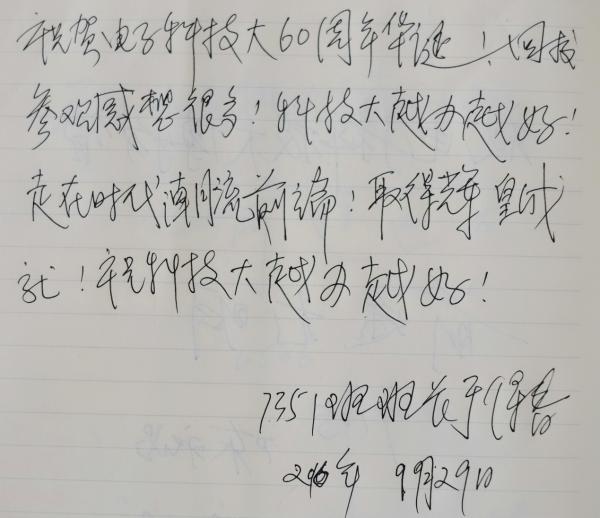 祝贺电子科技大60周年华诞！回校
参观感想很多！科技大越办越好！
走在时代潮流前端！取得辉煌成
就！祝科技大越办越好！
7351班班长于
2016年 9月29日